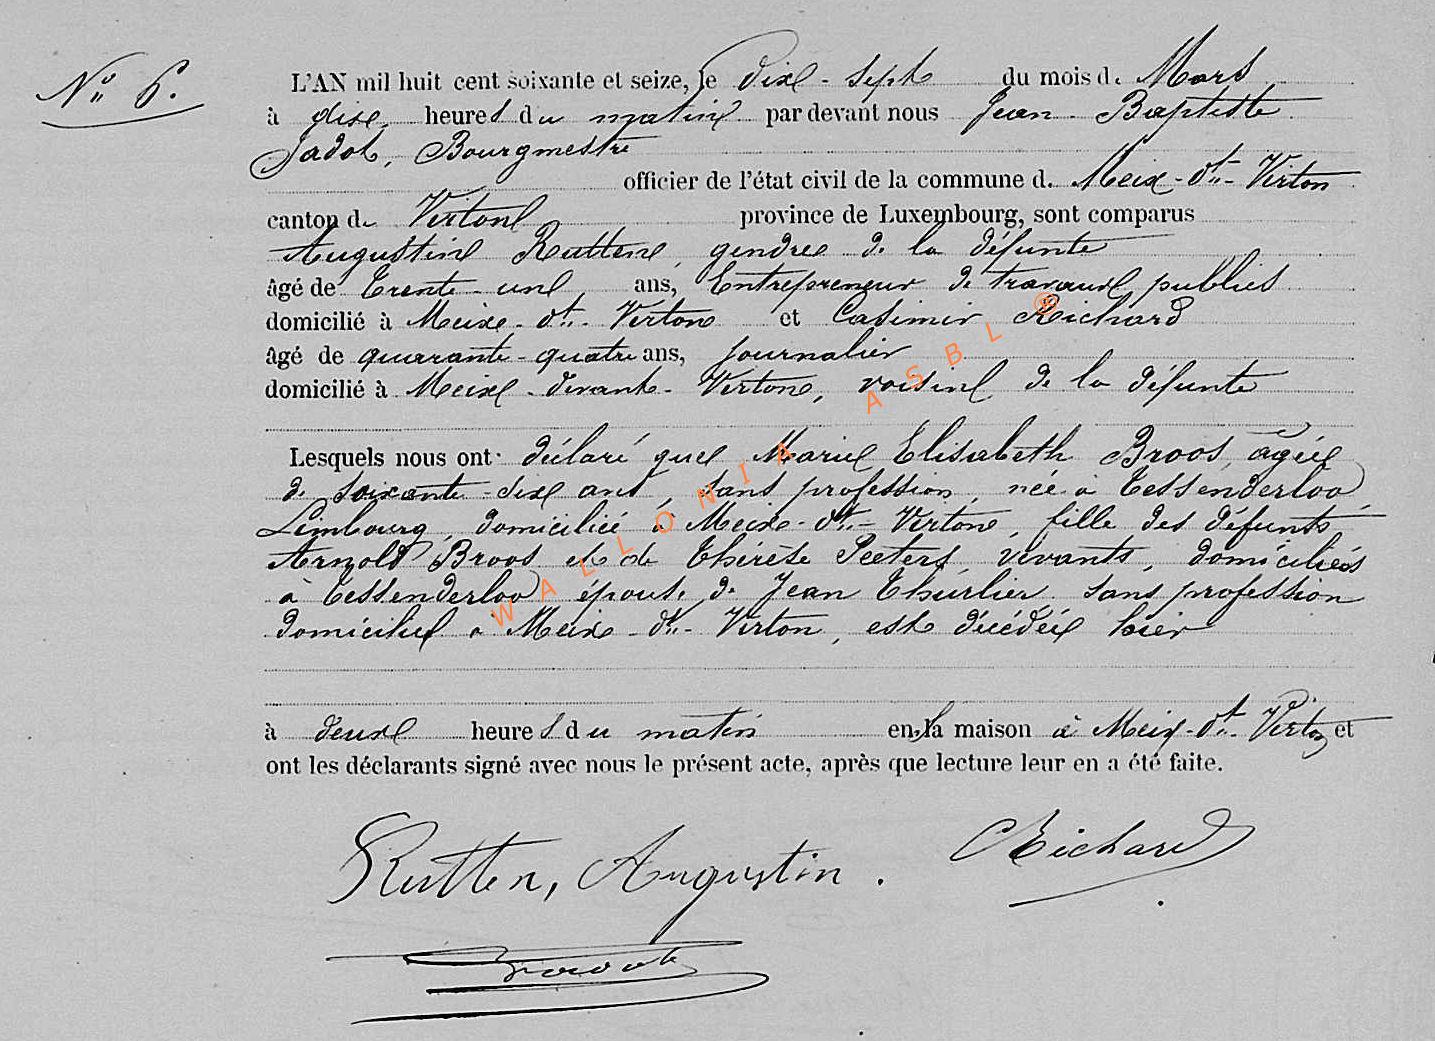 N° 6.
L'AN mil huit cent soixante et seize, le dix-sept du mois de Mars
à dix heures du matin par devant nous Jean Baptiste
Jadot, Bourgmestre
officier de l'état civil de la commune de Meix-dt-Virton
canton de Virton province de Luxembourg, sont comparus
Augustin Rutten, gendre de la défunte
âgé de trente-un ans, Entrepreneur de travaux publics
domicilié à Meix-dt-Virton et Casimir Richard
âgé de quarante-quatre ans, journalier
domicilié à Meix-devant-Virton, voisin de la défunte
Lesquels nous ont déclaré que Marie Elisabeth Broos, agée
de soixante-dix ans, sans profession, née à Tessenderloo
Limbourg, domiciliée à Meix-dt-Virton, fille des défunts
Arnold Broos et de Thérèse Peeters, vivants, domiciliés
à Tessenderloo épouse de Jean Thurlier sans profession
domicilié à Meix-dt-Virton, est décédée hier
à deux heures du matin en la maison à Meix-dt-Virton et
ont les déclarants signé avec nous le présent acte, après que lecture leur en a été faite.
Rutten, Augustin. CRichard
Jadot
WALLONIA ASBL ®